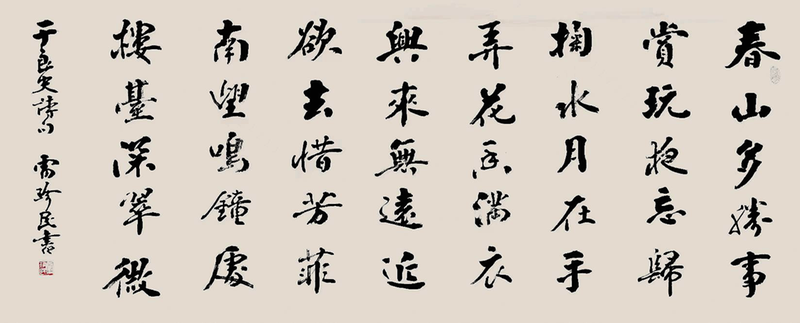 春山多勝事
賞玩夜忘歸
掬水月在手
弄花香滿衣
興來無遠近
欲去惜芳菲
南望鳴鐘處
樓臺深翠微
于良史詩句 雷珍民書